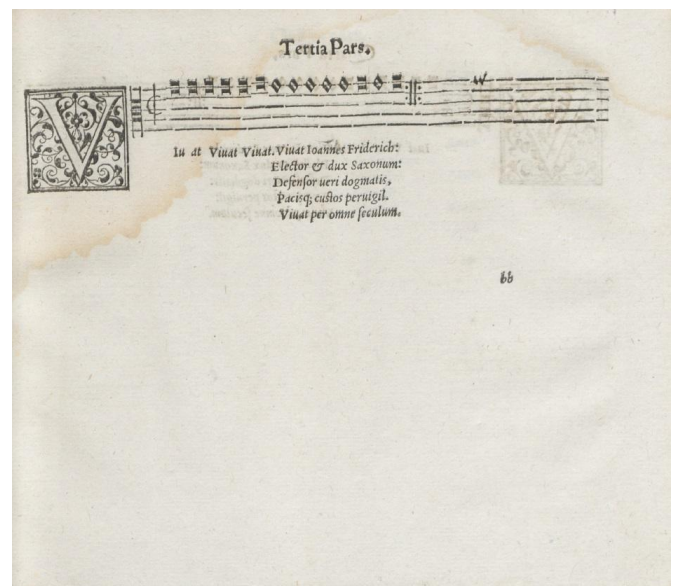 Tertia Pars.
V
Iu at Viuat Viuat. Viuat Ioannes Friderich:
Elector & dux Saxonum:
Defensor ueri dogmatis,
Pacisq; custos peruigil.
Viuat per omne seculum.
bb